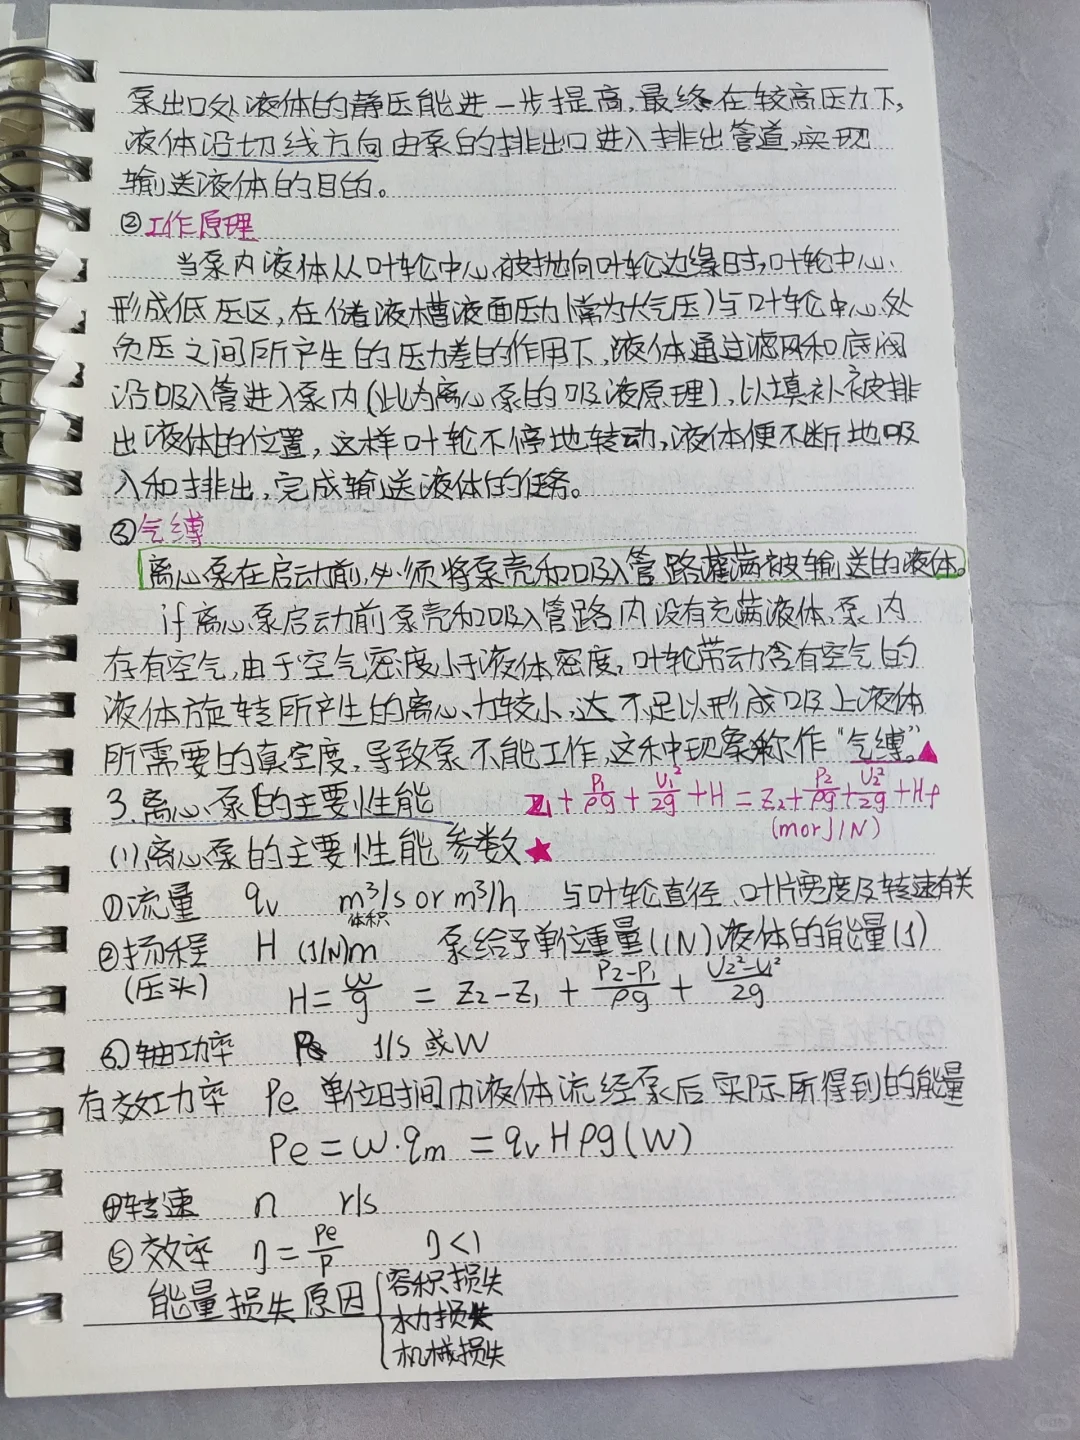 泵出口处液体的静压能进一步提高,最终在较高压力下,
液体沿切线方向由泵的排出口进入排出管道,实现
输送液体的目的。
②工作原理
当泵内液体从叶轮中心被抛向叶轮边缘时,叶轮中心
形成低压区,在储液槽液面压力(常为大气压)与叶轮中心处
负压之间所产生的压力差的作用下,液体通过滤网和底阀
沿吸入管进入泵内(此为离心泵的吸液原理),以填补被排
出液体的位置,这样叶轮不停地转动,液体便不断地吸
入和排出,完成输送液体的任务。
③气缚
离心泵在启动前,必须将泵壳和吸入管路灌满被输送的液体。
if离心泵启动前泵壳和吸入管路内没有充满液体,泵内
存有空气,由于空气密度小于液体密度,叶轮带动含有空气的
液体旋转所产生的离心力较小,达不足以形成吸上液体
所需要的真空度,导致泵不能工作,这种现象称作“气缚”。▲
3.离心泵的主要性能 Z₁+P₁/ρg+U₁²/2g+H=Z₂+P₂/ρg+U₂²/2g+Hf
(m or J/N)
(1)离心泵的主要性能参数★
①流量 qv m³/s or m³/h 与叶轮直径、叶片宽度及转速有关
体积
②扬程 H (J/N)m 泵给予单位重量(1N)液体的能量(J)
(压头) H=ω/g =Z₂-Z₁+P₂-P₁/ρg+U₂²-U₁²/2g
③轴功率 P J/s或W
有效功率 Pe 单位时间内液体流经泵后实际所得到的能量
Pe=ω·qm=qvHρg(W)
④转速 n r/s
⑤效率 η=Pe/P η<1
能量损失原因{容积损失
水力损失
机械损失